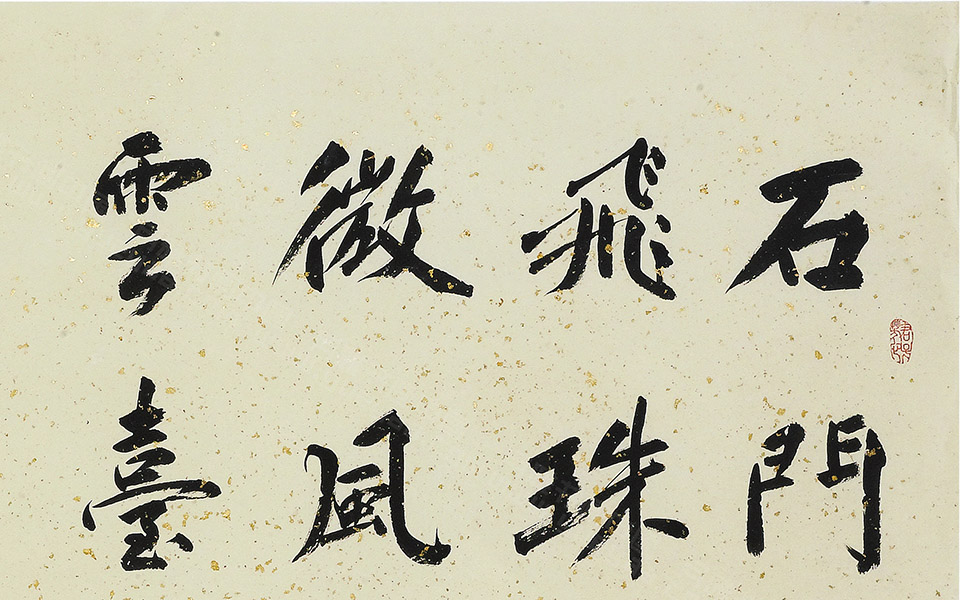 石門
飛珠
微風
雲臺